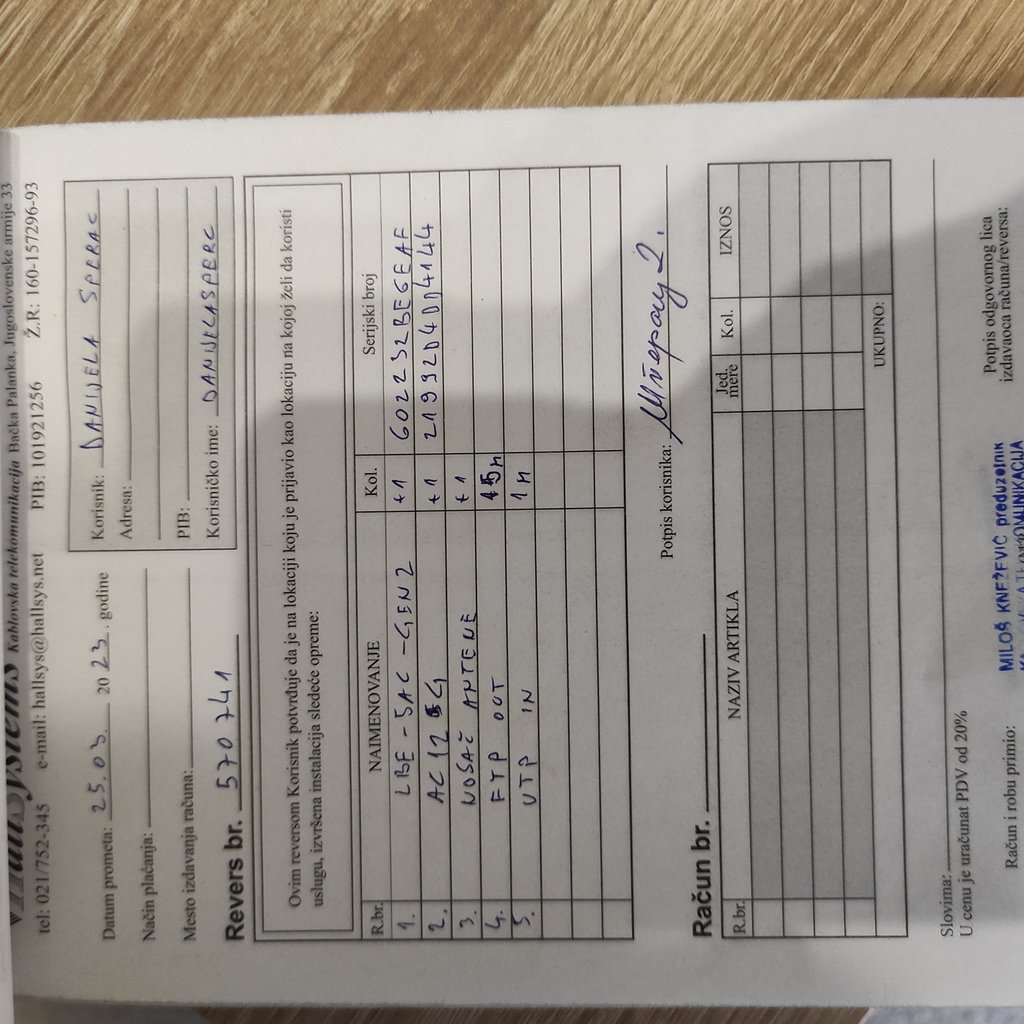 HallSystems Kablovska telekomunikacija Bačka Palanka, Jugoslovenske armije 33
tel: 021/752-345 e-mail: hallsys@hallsys.net PIB: 101921256 Ž.R: 160-157296-93
Datum prometa: 25.03. 20 23. godine
Način plaćanja:
Mesto izdavanja računa:
Korisnik: DANIJELA SPERAC
Adresa:
PIB:
Korisničko ime: DANIJELASPERC
Revers br. 570741
Ovim reversom Korisnik potvrđuje da je na lokaciji koju je prijavio kao lokaciju na kojoj želi da koristi
uslugu, izvršena instalacija sledeće opreme:
R.br. NAIMENOVANJE Kol. Serijski broj
1. LBE-5AC-GEN2 +1 602232BE6EAF
2. AC12 G +1 219920400/4144
3. NOSAČ ANTENE +1
4. FTP OUT 15m
5. UTP IN 1m
Potpis korisnika:
Račun br.
R.br. NAZIV ARTIKLA Jed. mere Kol. IZNOS
UKUPNO:
Slovima:
U cenu je uračunat PDV od 20%
Račun i robu primio:
Potpis odgovornog lica
izdavaoca računa/reversa:
MILOŠ KNEŽEVIĆ preduzetnik